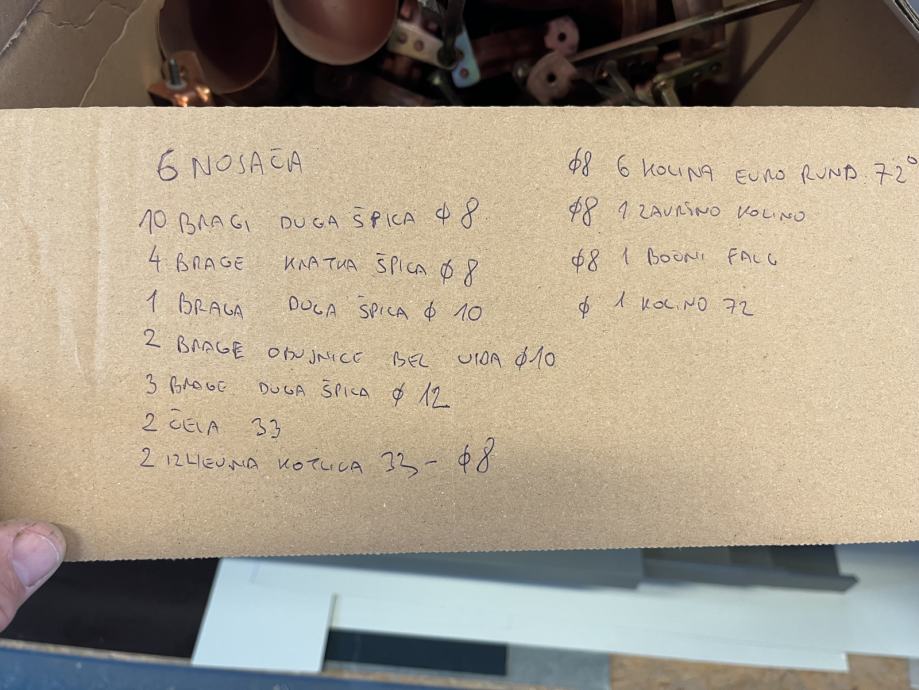 6 NOSAČA
10 BRAGI DUGA ŠPICA ϕ 8
4 BRAGE KRATKA ŠPICA ϕ 8
1 BRAGA DUGA ŠPICA ϕ 10
2 BRAGE OBUJNICE BEL VIDA ϕ10
3 BRAGE DUGA ŠPICA ϕ 12
2 ČELA 33
2 IZLIEVNA KOTLICA 33 - ϕ8
ϕ8 6 KOLINA EURO RUND 72°
ϕ8 1 ZAVRŠNO KOLINO
ϕ8 1 BOČNI FALC
ϕ 1 KOLINO 72